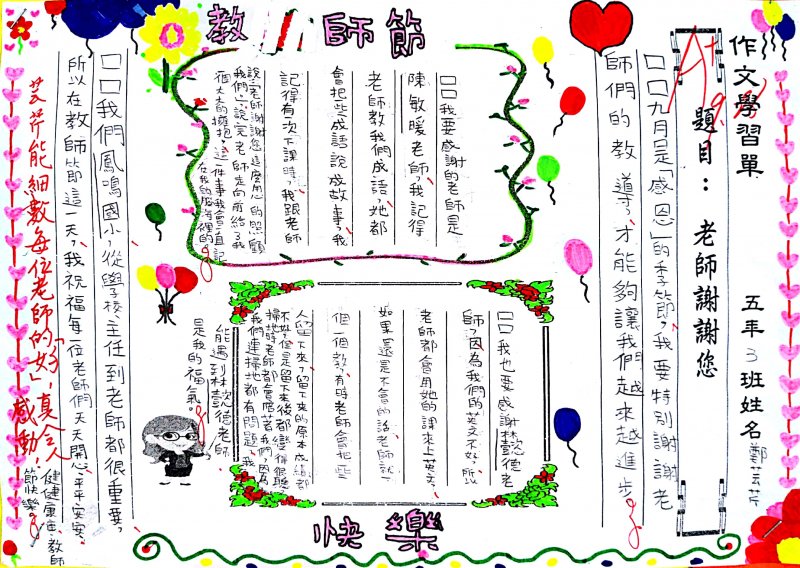 教師節
快樂
作文學習單
五年3班姓名鄭芸芹
題目：老師謝謝您
A+
□□九月是「感恩」的季節，我要特別謝謝老
師們的教導，才能夠讓我們越來越進步。
□□我要感謝的老師是
陳敏暖老師，我記得
老師教我們成語，她都
會把些成語說成故事，我
記得有次下課時，我跟老師
說：「老師謝謝您這麼用心的照顧
我們」，說完老師走向前給了我
很大的擁抱，這一件事我會一直記
在我的腦海裡的。
□□我也要感謝林懿德老
師，因為我們的英文不好，所以
老師都會用她的課來上英文，
如果還是不會的話老師就一
個一個教，有時老師會把些
人留下來，留下來的原本成績都
不好，但是留下來後都變得很聰
掃地時老師都會陪著我們，因為
我們連掃地都有問題，我
能遇到林懿德老師
是我的福氣。
□□我們鳳鳴國小，從學校主任到老師都很重要，
所以在教師節這一天，我祝福每一位老師們天天開心、平平安安、
健健康康，教師
節快樂。
芸芹能細數每位老師的「好」，真令人
感動！